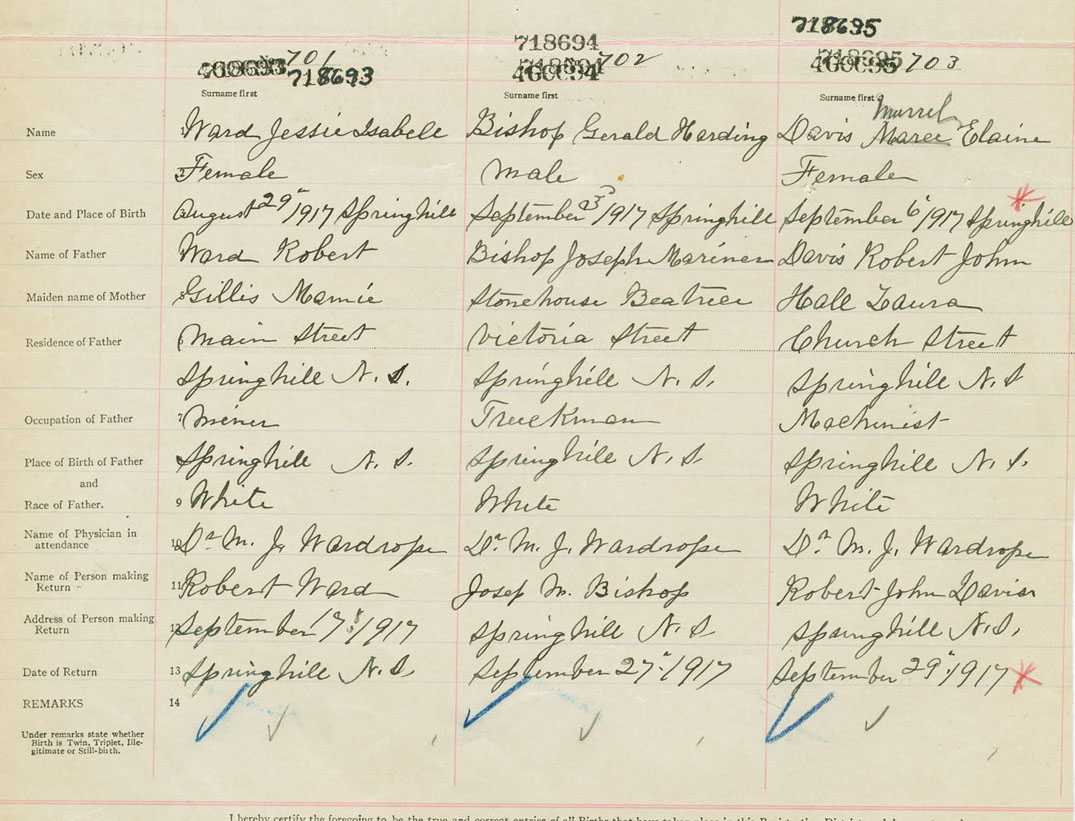 718695
718694
701 702 703
718693
Surname first Surname first Surname first
Murrel
Name Ward Jessie Isabele Bishop Gerald Harding Davis Maree Elaine
Sex Female Male Female
Date and Place of Birth August 29"/1917 Springhill September 3"/1917 Springhill September 6"/1917 Springhill
Name of Father Ward Robert Bishop Joseph Mariner Davis Robert John
Maiden name of Mother Gillis Mamie Stonehouse Beatrice Hall Laura
Residence of Father Main Street Victoria Street Church Street
Springhill N. S. Springhill N. S. Springhill N. S
Occupation of Father 7 Miner Truckman Machinist
Place of Birth of Father Springhill N. S. Springhill N. S. Springhill N. S.
and
Race of Father. 9 White White White
Name of Physician in
attendance 10 Dr M. J. Wardrope Dr M. J. Wardrope Dr M. J. Wardrope
Name of Person making
Return 11 Robert Ward Josep M. Bishop Robert John Davis
Address of Person making
Return 12 September /1917 Springhill N. S Springhill N. S.
Date of Return 13 Springhill N. S September 27"/1917 September 29"/1917
REMARKS 14
Under remarks state whether
Birth is Twin, Triplet, Ille-
gitimate or Still-birth.
I hereby certify the foregoing to be the true and correct entries of all Births that have taken place in this Registration District